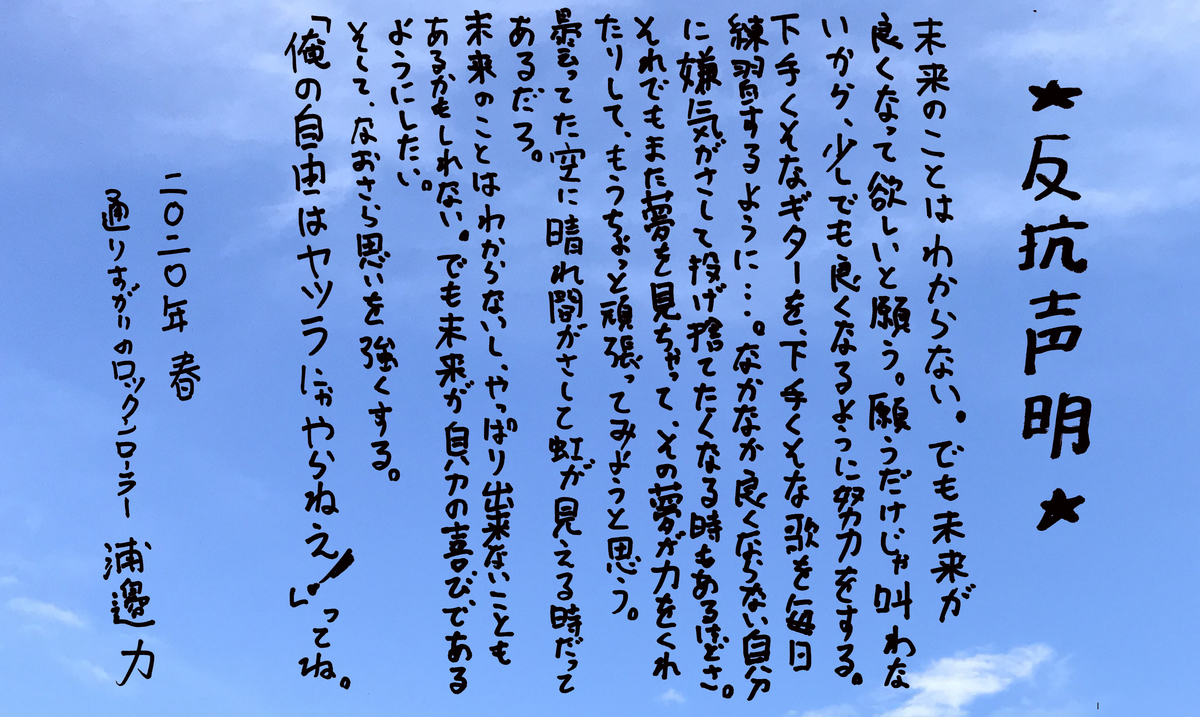 ★反抗声明★
未来のことはわからない。でも未来が
良くなって欲しいと願う。願うだけじゃ叫わな
いから、少しでも良くなるように努力をする。
下手くそなギターを、下手くそな歌を毎日
練習するように…。なかなか良くならない自分
に嫌気がさして投げ捨てたくなる時もあるけどさ。
それでもまた夢を見ちゃって、その夢が力をくれ
たりして、もうちょっと頑張ってみようと思う。
曇ってた空に晴れ間がさして虹が見える時だって
あるだろ。
未来のことはわからないし、やっぱり出来ないことも
あるかもしれない。でも未来が自分の喜びである
ようにしたい。
そして、なおさら思いを強くする。
「俺の自由はヤツラにゃやらねえ!」ってね。
二〇二〇年 春
通りすがりのロックンローラー 浦邊 力